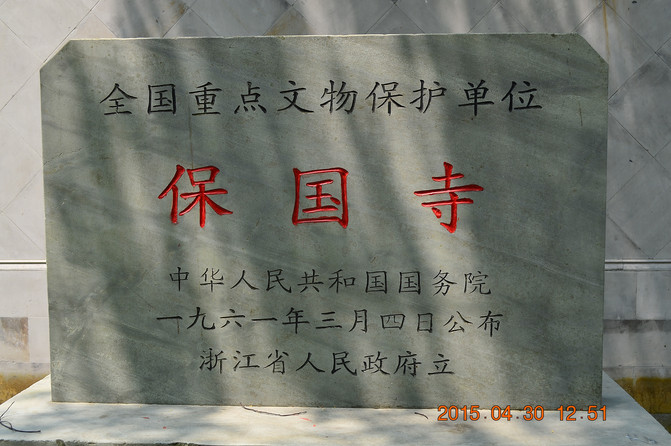 全国重点文物保护单位
保国寺
中华人民共和国国务院
一九六一年三月四日公布
浙江省人民政府立
2015.04.30 12:51